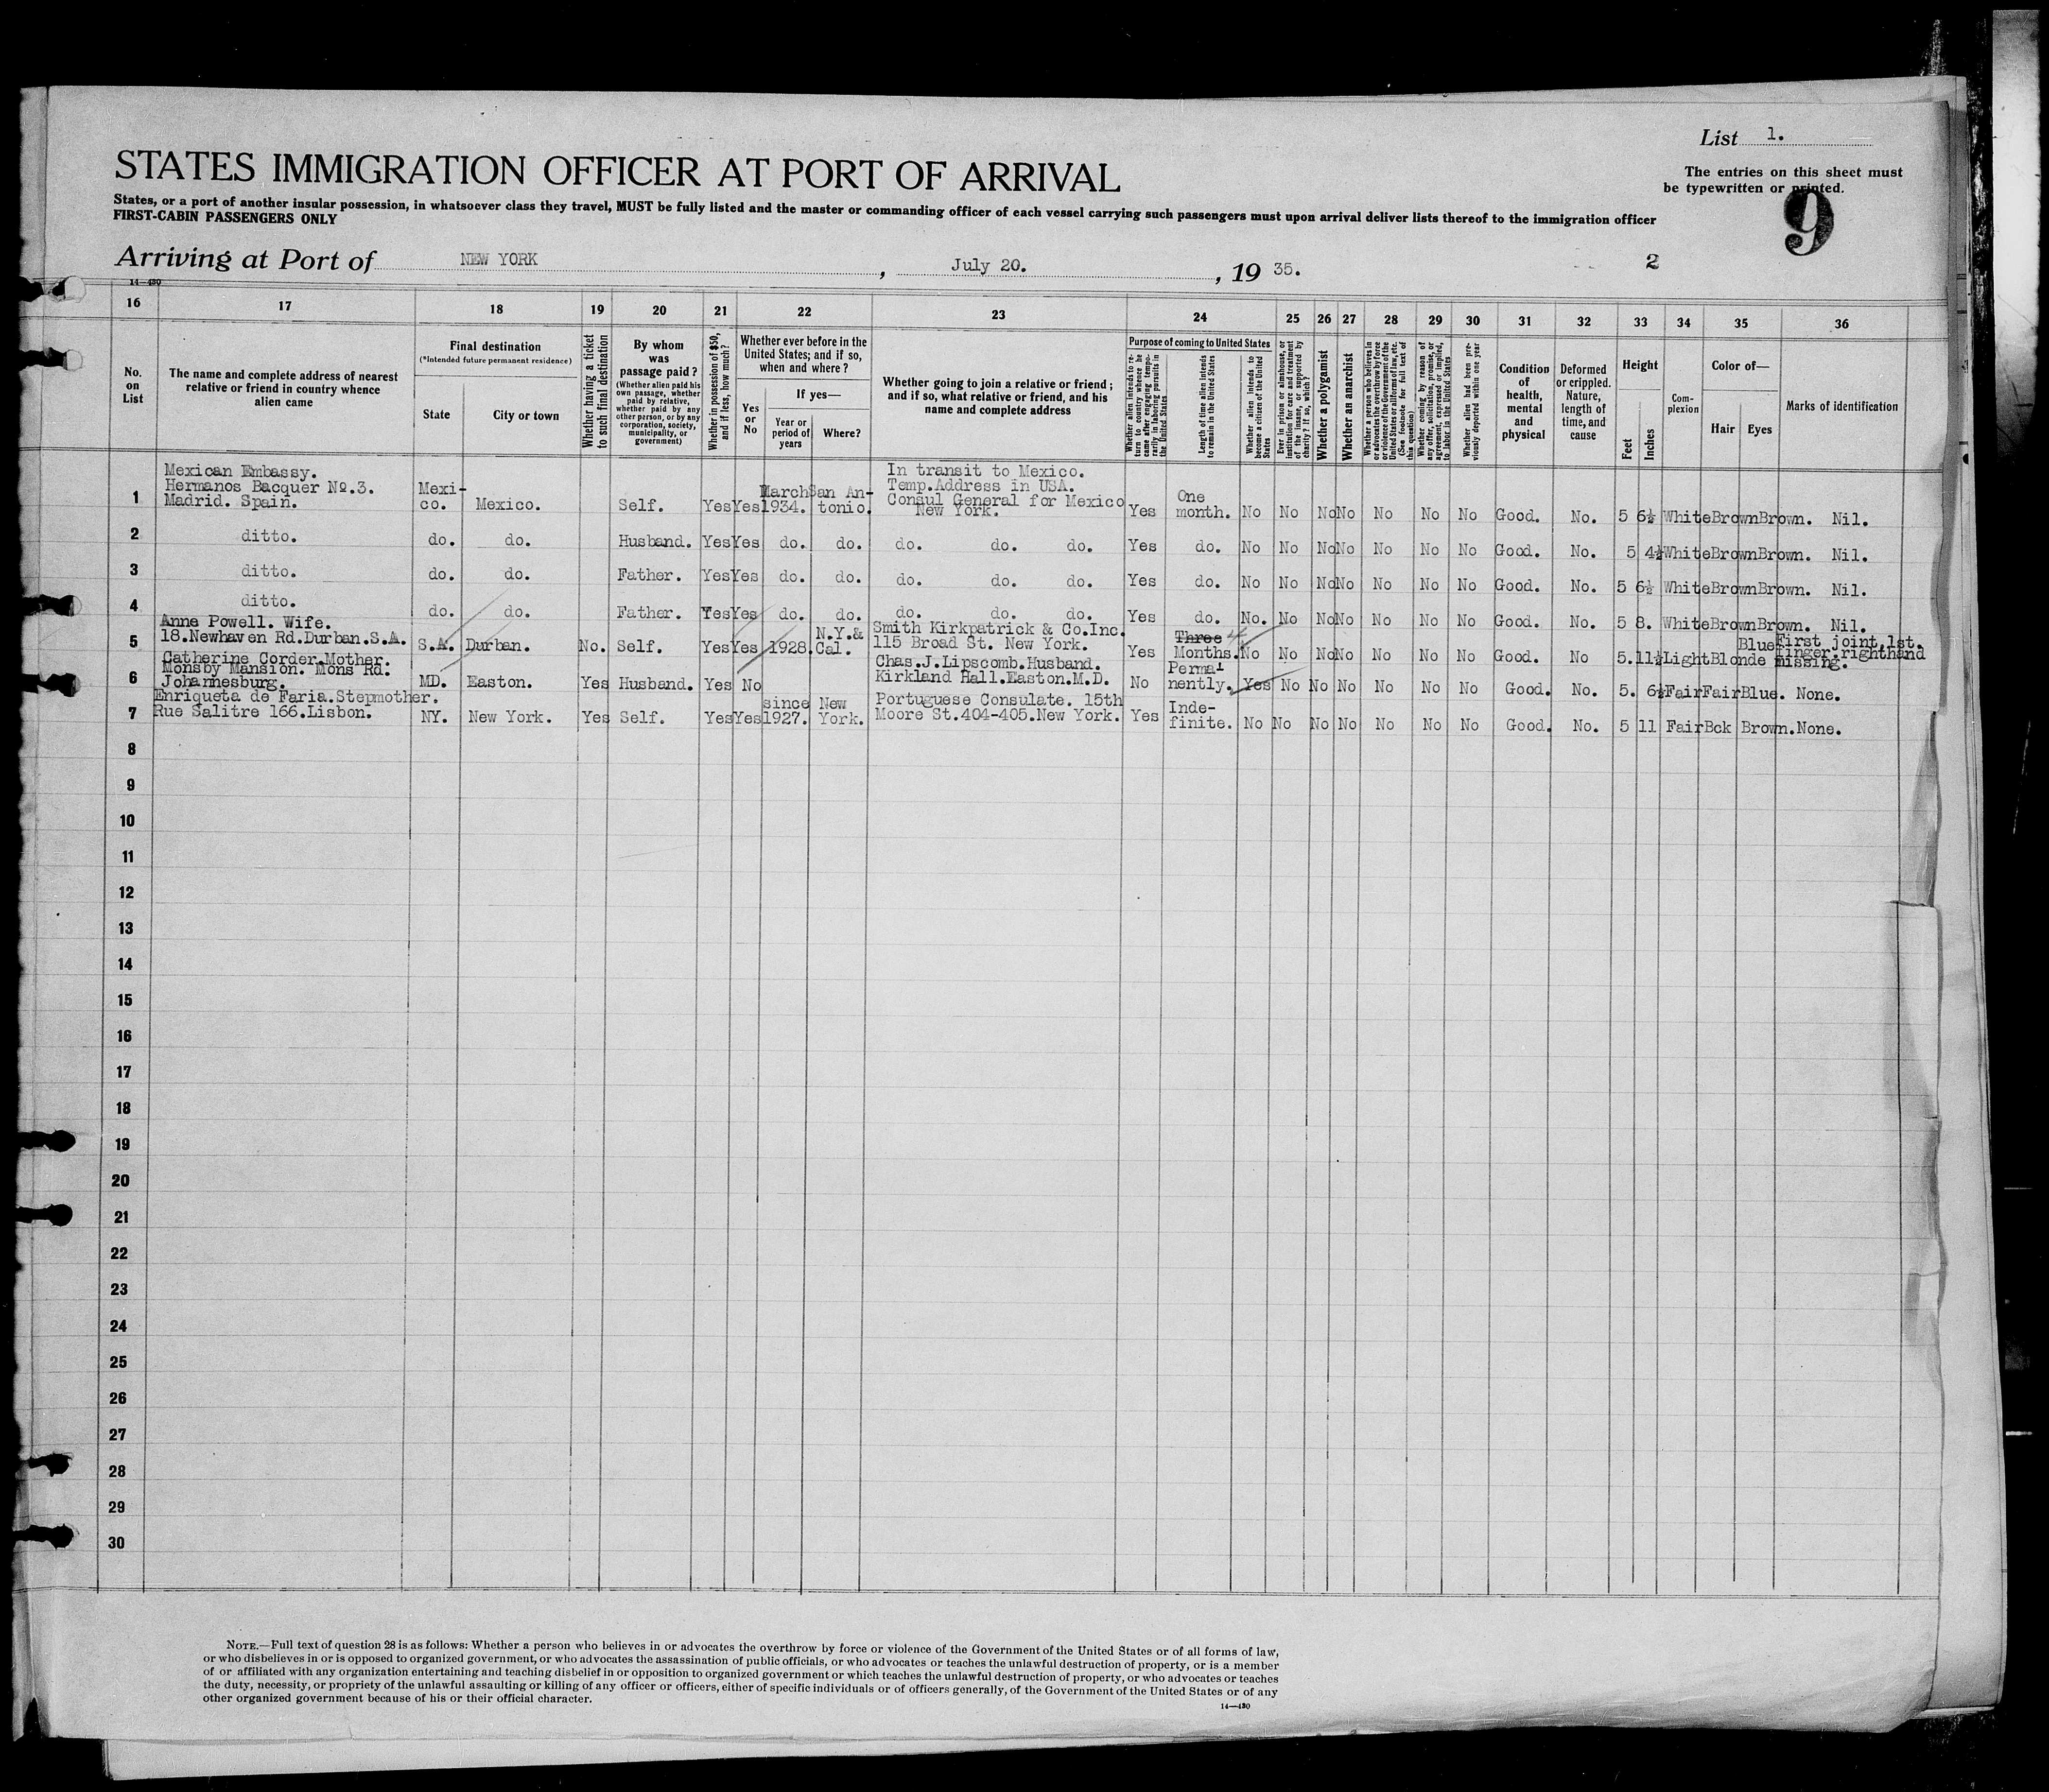 List 1.
STATES IMMIGRATION OFFICER AT PORT OF ARRIVAL
The entries on this sheet must
be typewritten or printed.
States, or a port of another insular possession, in whatsoever class they travel, MUST be fully listed and the master or commanding officer of each vessel carrying such passengers must upon arrival deliver lists thereof to the immigration officer
FIRST-CABIN PASSENGERS ONLY
9
Arriving at Port of NEW YORK , July 20. , 19 35.
2
14—430
16 17 18 19 20 21 22 23 24 25 26 27 28 29 30 31 32 33 34 35 36
No. on List
The name and complete address of nearest relative or friend in country whence alien came
Final destination
(*Intended future permanent residence)
State
City or town
Whether having a ticket to such final destination
By whom was passage paid?
(Whether alien paid his own passage, whether paid by relative, whether paid by any other person, or by any corporation, society, municipality, or government)
Whether in possession of $50, and if less, how much?
Whether ever before in the United States; and if so, when and where?
Yes or No
If yes—
Year or period of years
Where?
Whether going to join a relative or friend; and if so, what relative or friend, and his name and complete address
Purpose of coming to United States
Whether alien intends to return to country whence he came after engaging temporarily in laboring pursuits in the United States
Length of time alien intends to remain in the United States
Whether alien intends to become a citizen of the United States
Ever in prison or almshouse, or institution for care and treatment of the insane, or supported by charity? If so, which?
Whether a polygamist
Whether an anarchist
Whether a person who believes in or advocates the overthrow by force or violence of the Government of the United States or all forms of law, etc. (See footnote for full text of this question)
Whether coming by reason of any offer, solicitation, promise, or agreement, expressed or implied, to labor in the United States
Whether alien had been previously deported within one year
Condition of health, mental and physical
Deformed or crippled. Nature, length of time, and cause
Height
Feet
Inches
Complexion
Color of—
Hair
Eyes
Marks of identification
1 Mexican Embassy. Hermanos Bacquer No.3. Madrid. Spain. Mexi-co. Mexico. Self. Yes Yes March 1934. San An-tonio. In transit to Mexico. Temp.Address in USA. Consul General for Mexico New York. Yes One month. No No No No No No No Good. No. 5 6½ White Brown Brown. Nil.
2 ditto. do. do. Husband. Yes Yes do. do. do. do. do. Yes do. No No No No No No No Good. No. 5 4½ White Brown Brown. Nil.
3 ditto. do. do. Father. Yes Yes do. do. do. do. do. Yes do. No No No No No No No Good. No. 5 6½ White Brown Brown. Nil.
4 ditto. do. do. Father. Yes Yes do. do. do. do. do. Yes do. No. No No No No No No Good. No. 5 8. White Brown Brown. Nil.
5 Anne Powell. Wife. 18.Newhaven Rd.Durban.S.A. S.A. Durban. No. Self. Yes Yes 1928. N.Y.& Cal. Smith Kirkpatrick & Co.Inc. 115 Broad St. New York. Yes Three 4 Months. No No No No No No No Good. No 5.11½ Light Blonde Blue First joint,1st. finger.righthand missing.
6 Catherine Corder.Mother. Monsby Mansion. Mons Rd. Johannesburg. MD. Easton. Yes Husband. Yes No Chas.J.Lipscomb.Husband. Kirkland Hall.Easton.M.D. No Perma-nently. Yes No No No No No No Good. No. 5. 6½ Fair Fair Blue. None.
7 Enriqueta de Faria.Stepmother. Rue Salitre 166.Lisbon. NY. New York. Yes Self. Yes Yes since 1927. New York. Portuguese Consulate. 15th Moore St.404-405.New York. Yes Inde-finite. No No No No No No No Good. No. 5 11 Fair Bck Brown. None.
8
9
10
11
12
13
14
15
16
17
18
19
20
21
22
23
24
25
26
27
28
29
30
NOTE.—Full text of question 28 is as follows: Whether a person who believes in or advocates the overthrow by force or violence of the Government of the United States or of all forms of law,
or who disbelieves in or is opposed to organized government, or who advocates the assassination of public officials, or who advocates or teaches the unlawful destruction of property, or is a member
of or affiliated with any organization entertaining and teaching disbelief in or opposition to organized government or which teaches the unlawful destruction of property, or who advocates or teaches
the duty, necessity, or propriety of the unlawful assaulting or killing of any officer or officers, either of specific individuals or of officers generally, of the Government of the United States or of any
other organized government because of his or their official character.
14—430